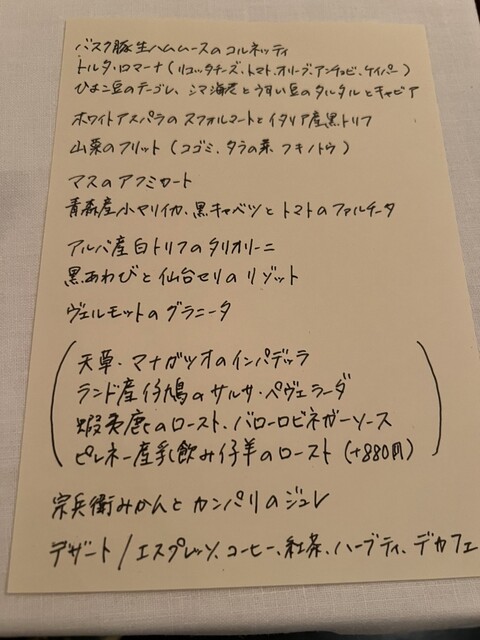 バスク豚生ハムムースのコルネッティ
トルタ・ロマーナ(リコッタチーズ、トマト、オリーブ、アンチョビ、ケイパー)
ひよこ豆のテーゴレ、シマ海老とうすい豆のタルタルとキャビア
ホワイトアスパラのスフォルマートとイタリア産黒トリフ
山菜のフリット(コゴミ、タラの葉、フキノトウ)
マスのアフミカート
青森産小ヤリイカ、黒キャベツとトマトのファルチータ
アルバ産白トリフのタリオリーニ
黒あわびと仙台セリのリゾット
ヴェルモットのグラニータ
天草・マナガツオのインパデッラ
ランド産仔鳩のサルサ・ペヴェラーダ
蝦夷鹿のロースト、バローロビネガーソース
ピレネー産乳飲み仔羊のロースト(+880円)
宗兵衛みかんとカンパリのジュレ
デザート/エスプレッソ、コーヒー、紅茶、ハーブティ、デカフェ